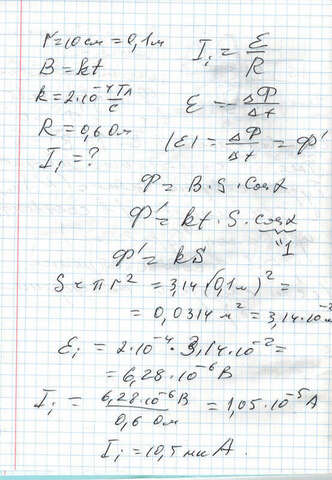 r = 10 см = 0,1 м
B = kt
k = 2·10⁻⁴ Тл/с
R = 0,6 Ом
I_i = ?
I_i = ℰ/R
ℰ = -ΔΦ/Δt
|ℰ| = ΔΦ/Δt = Φ'
Φ = B·S·Cosα
Φ' = kt·S·cosα
"1
Φ' = kS
S = πr² = 3,14·(0,1м)² =
= 0,0314 м² = 3,14·10⁻² м
ℰ_i = 2·10⁻⁴·3,14·10⁻² =
= 6,28·10⁻⁶ В
I_i = 6,28·10⁻⁶В/0,6 Ом = 1,05·10⁻⁵ А
I_i = 10,5 мкА.